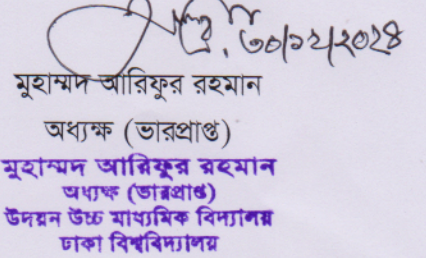 ৩০/১২/২০২৪
মুহাম্মদ আরিফুর রহমান
অধ্যক্ষ (ভারপ্রাপ্ত)
মুহাম্মদ আরিফুর রহমান
অধ্যক্ষ (ভারপ্রাপ্ত)
উদয়ন উচ্চ মাধ্যমিক বিদ্যালয়
ঢাকা বিশ্ববিদ্যালয়